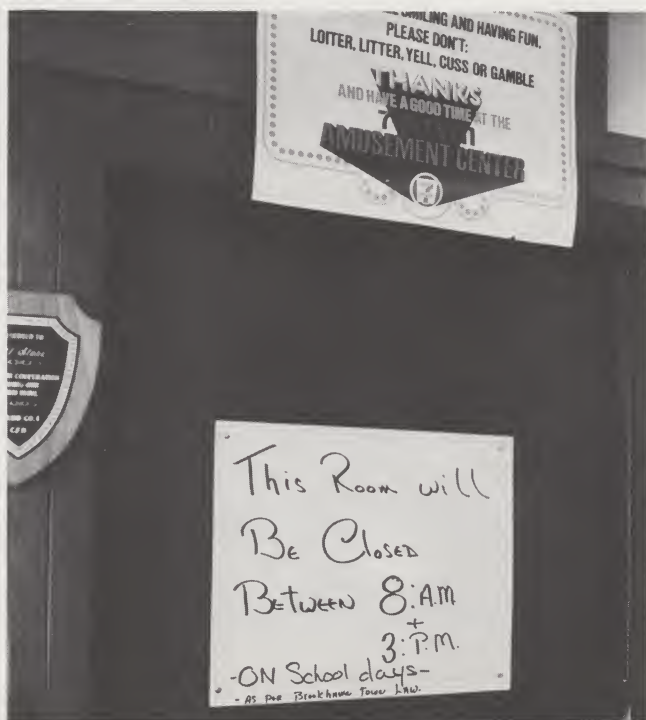 SMILING AND HAVING FUN.
PLEASE DON'T:
LOITER, LITTER, YELL, CUSS OR GAMBLE
THANKS
AND HAVE A GOOD TIME AT THE
AMUSEMENT CENTER
TO
COOPERATION
CO.
This Room will
BE CLOSED
BETWEEN 8:A.M
+
3:P.M.
-ON School days-
- AS per Brookhaven Town LAW.